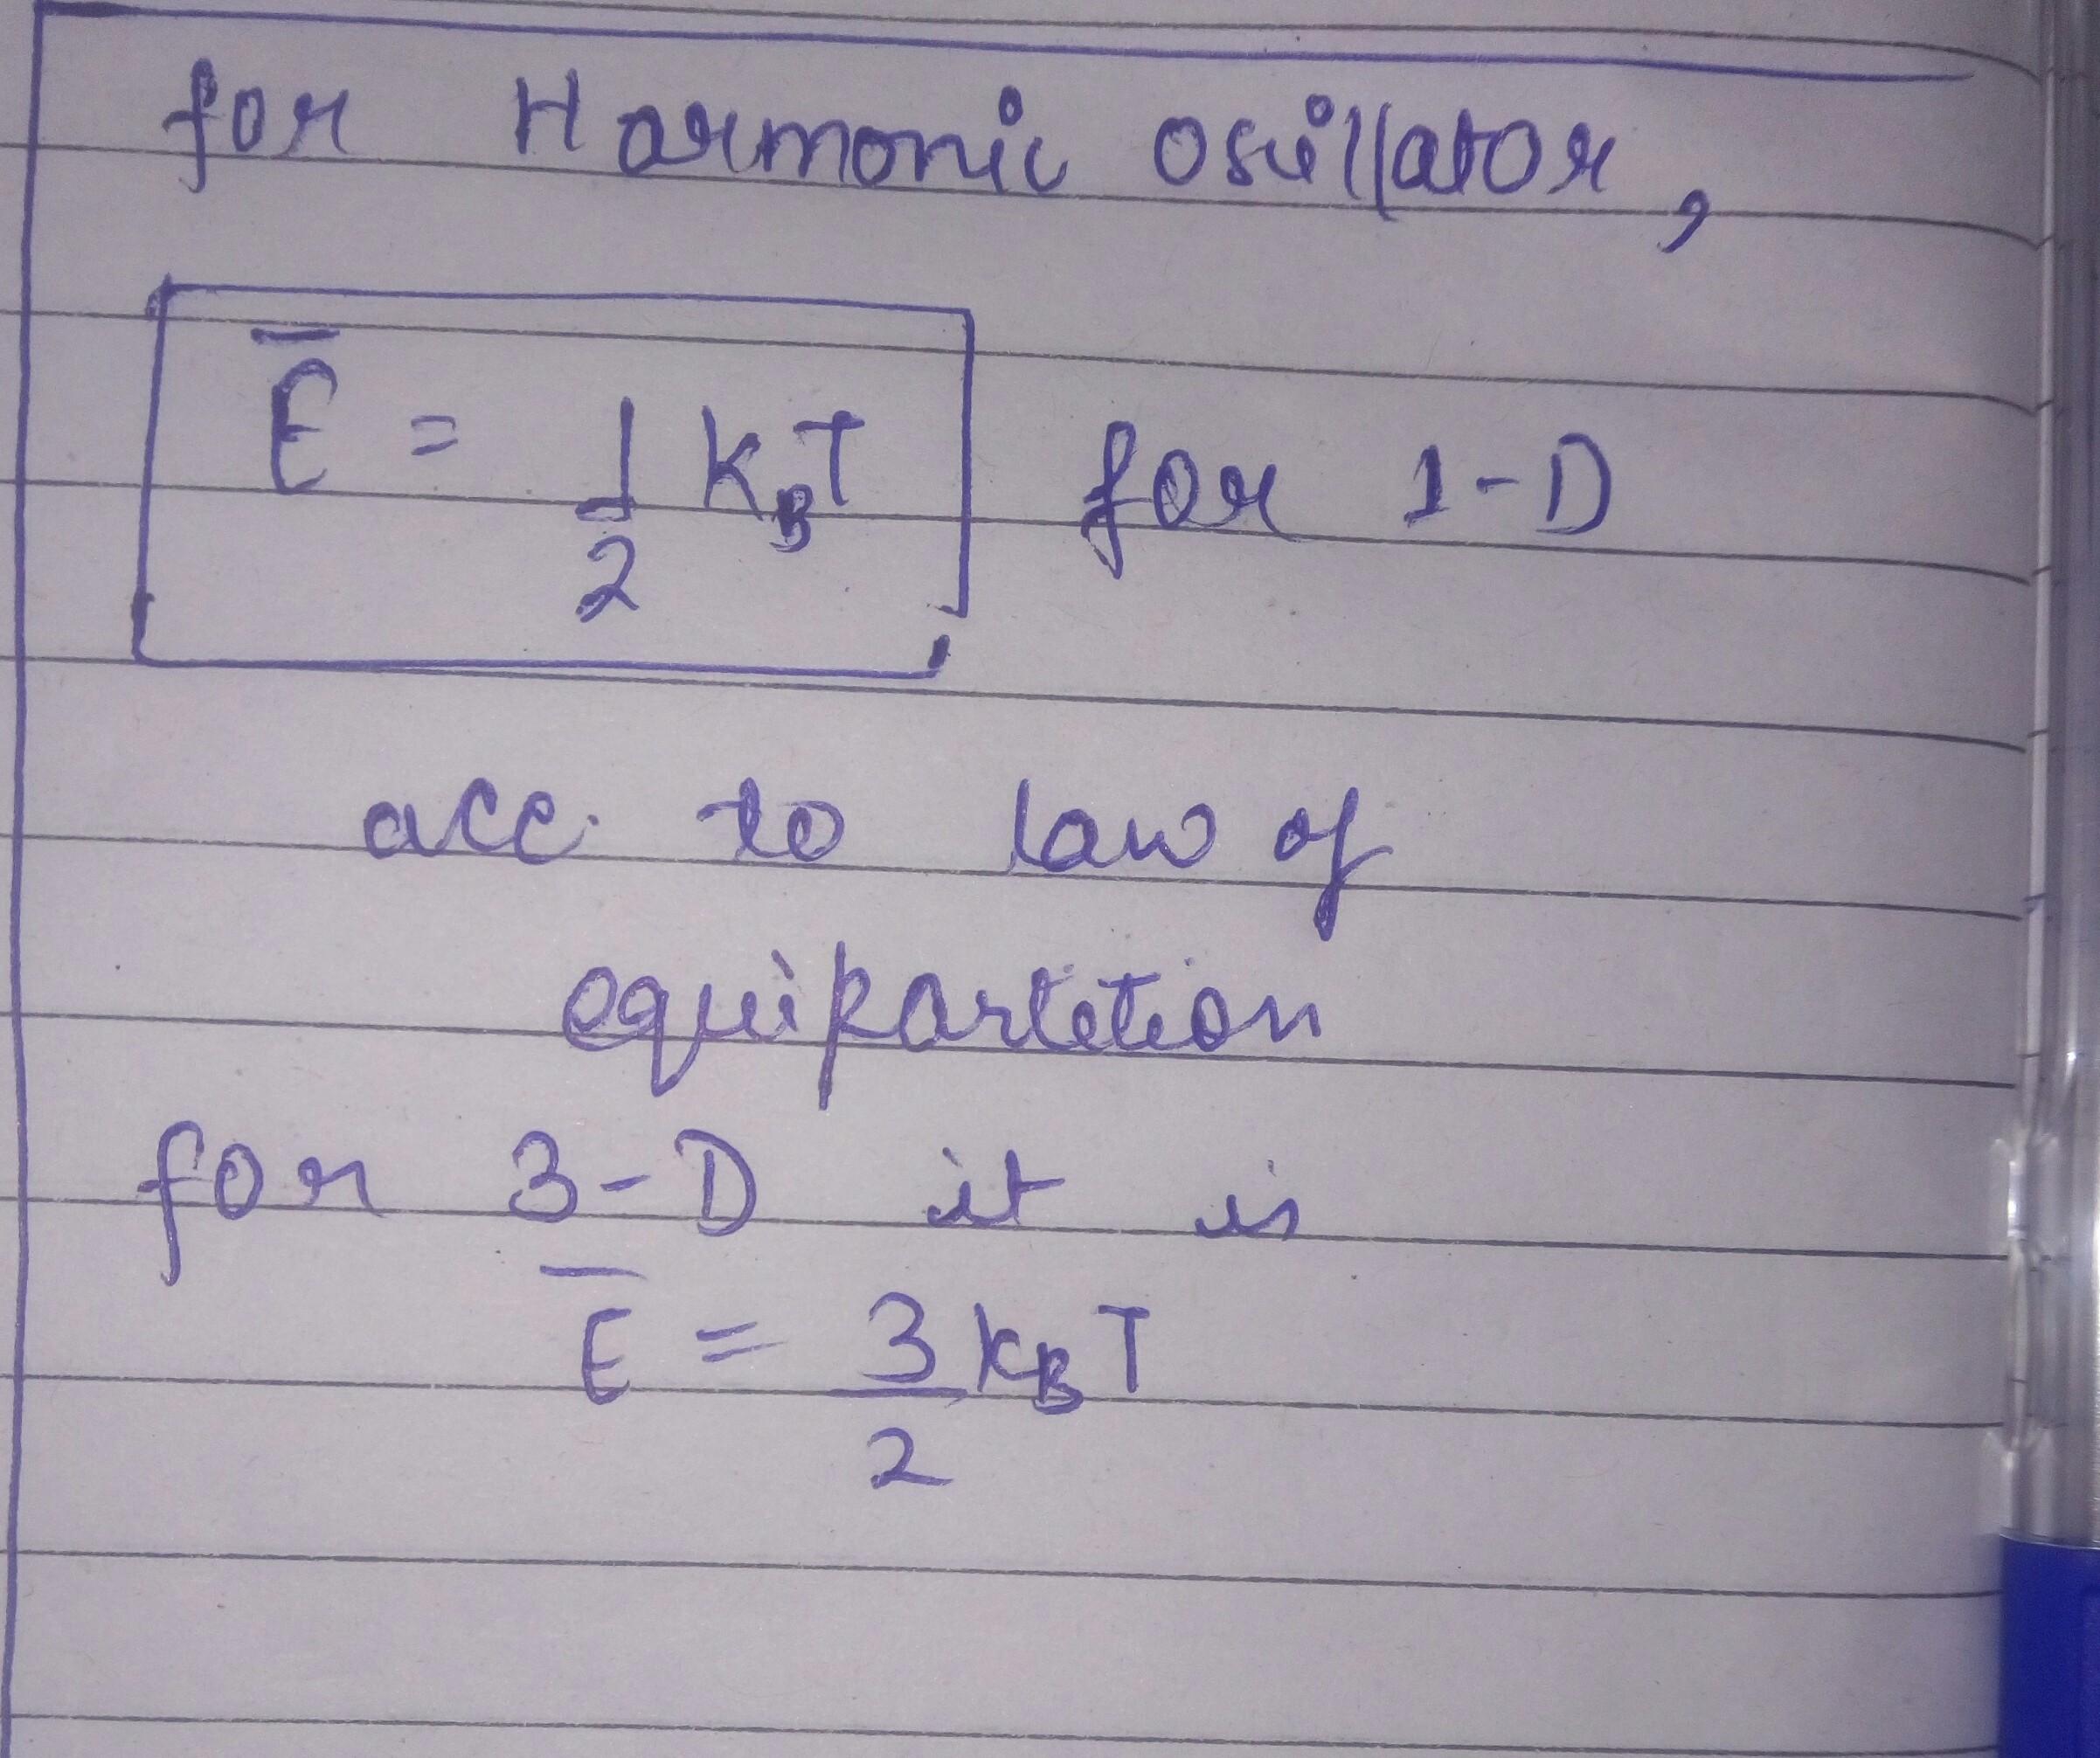 for Harmonic oscillator,
Ē = 1/2 KBT for 1-D
acc. to law of
equipartition
for 3-D it is
Ē = 3/2 KBT